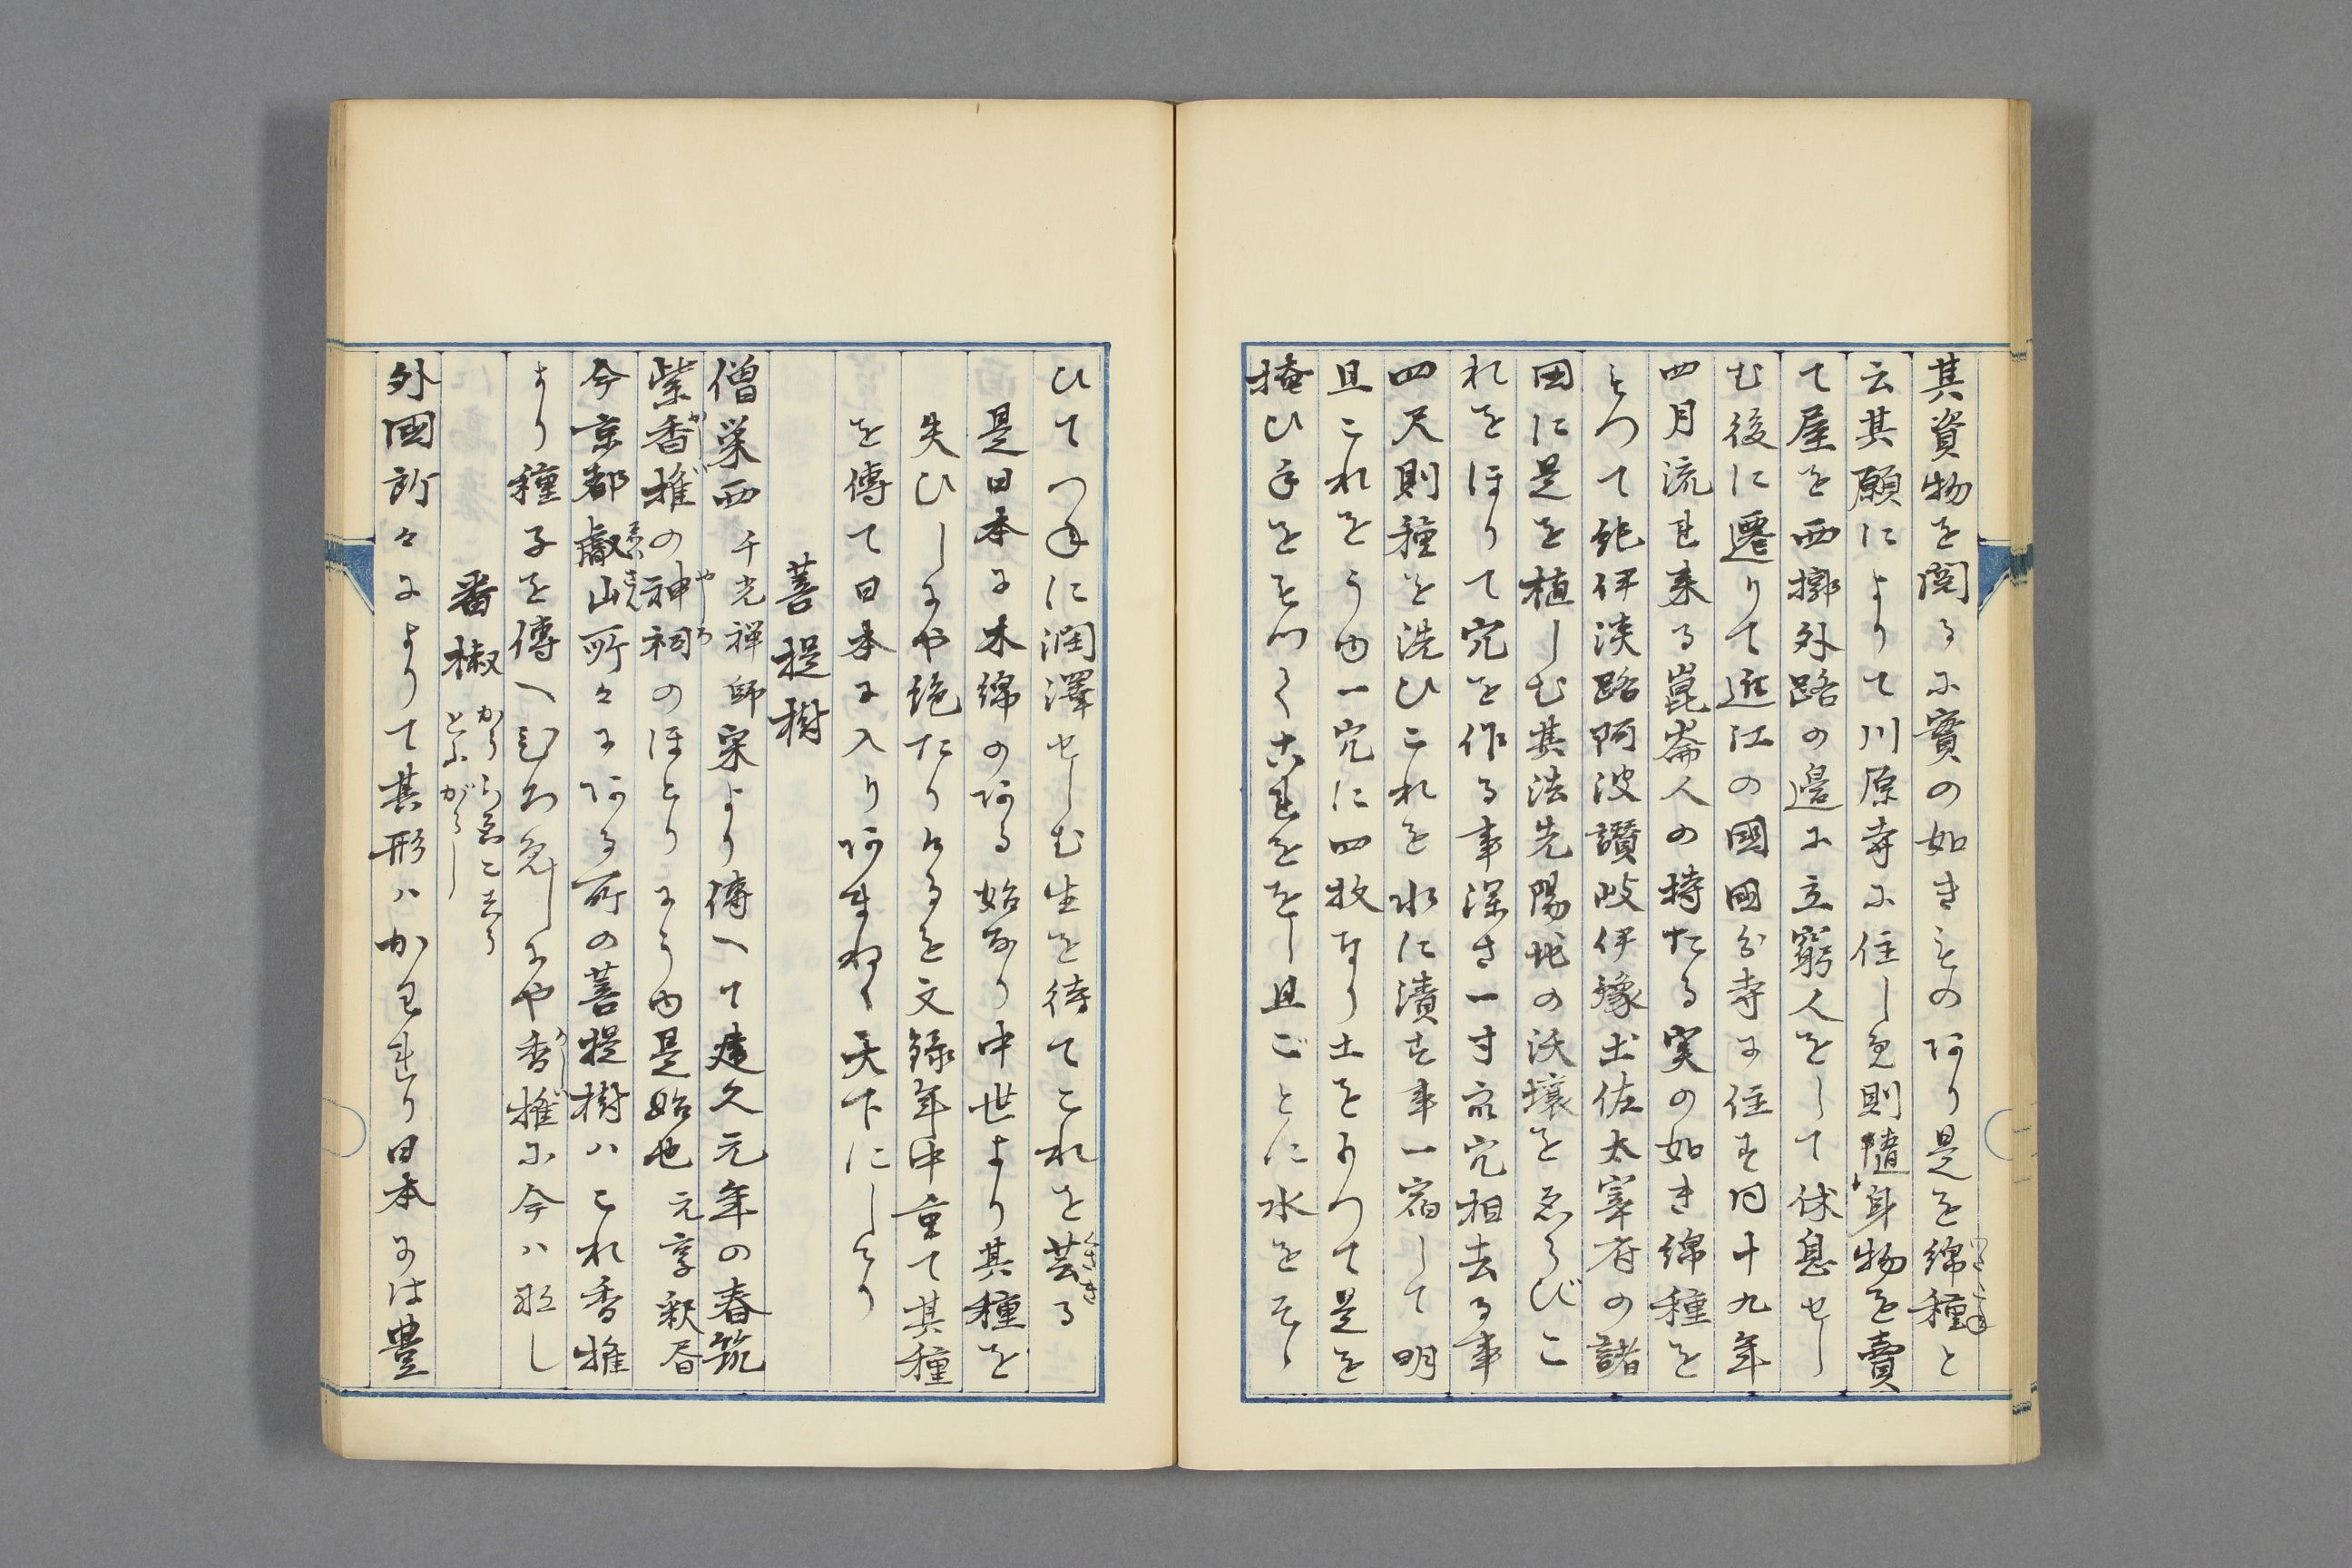 其資物を閲るに實の如きものあり是を綿種と
云其願によりて川原寺に住しむ則隨身物を賣
て屋を西槨外路の邉に立窮人をして休息せし
む後に遷りて近江の國國分寺に住す同十九年
四月流れ来る崑崙人の持たる実の如き綿種を
もつて紀伊淡路阿波讚岐伊豫土佐太宰府の諸
国に是を植しむ其法先陽地の沃壌をゑらびこ
れをほりて穴を作る事深さ一寸衆穴相去る事
四尺則種を洗ひこれを水に漬す事一宿して明
且これをうゆ一穴に四枚なり土をもつて是を
掩ひ手をもつて是をおし且ごとに水をそゝ
ひてつねに潤澤せしむ生を待てこれを芸る
是日本に木綿のある始なり中世より其種を
失ひしにや絶たりけるを文録年中重て其種
を傳て日本に入りあまねく天下にしけり
菩提樹
僧栄西 千光禅師 宋より傳へて建久元年の春筑
紫香椎の神祠のほとりにうゆ是始也 元亨釈書
今京都叡山所々にある所の菩提樹ハこれ香椎
より種子を傳へしにや香椎に今ハ殆し
番椒 からしこせう とふがらし
外國所々によりて其形ハかはれり日本には豊